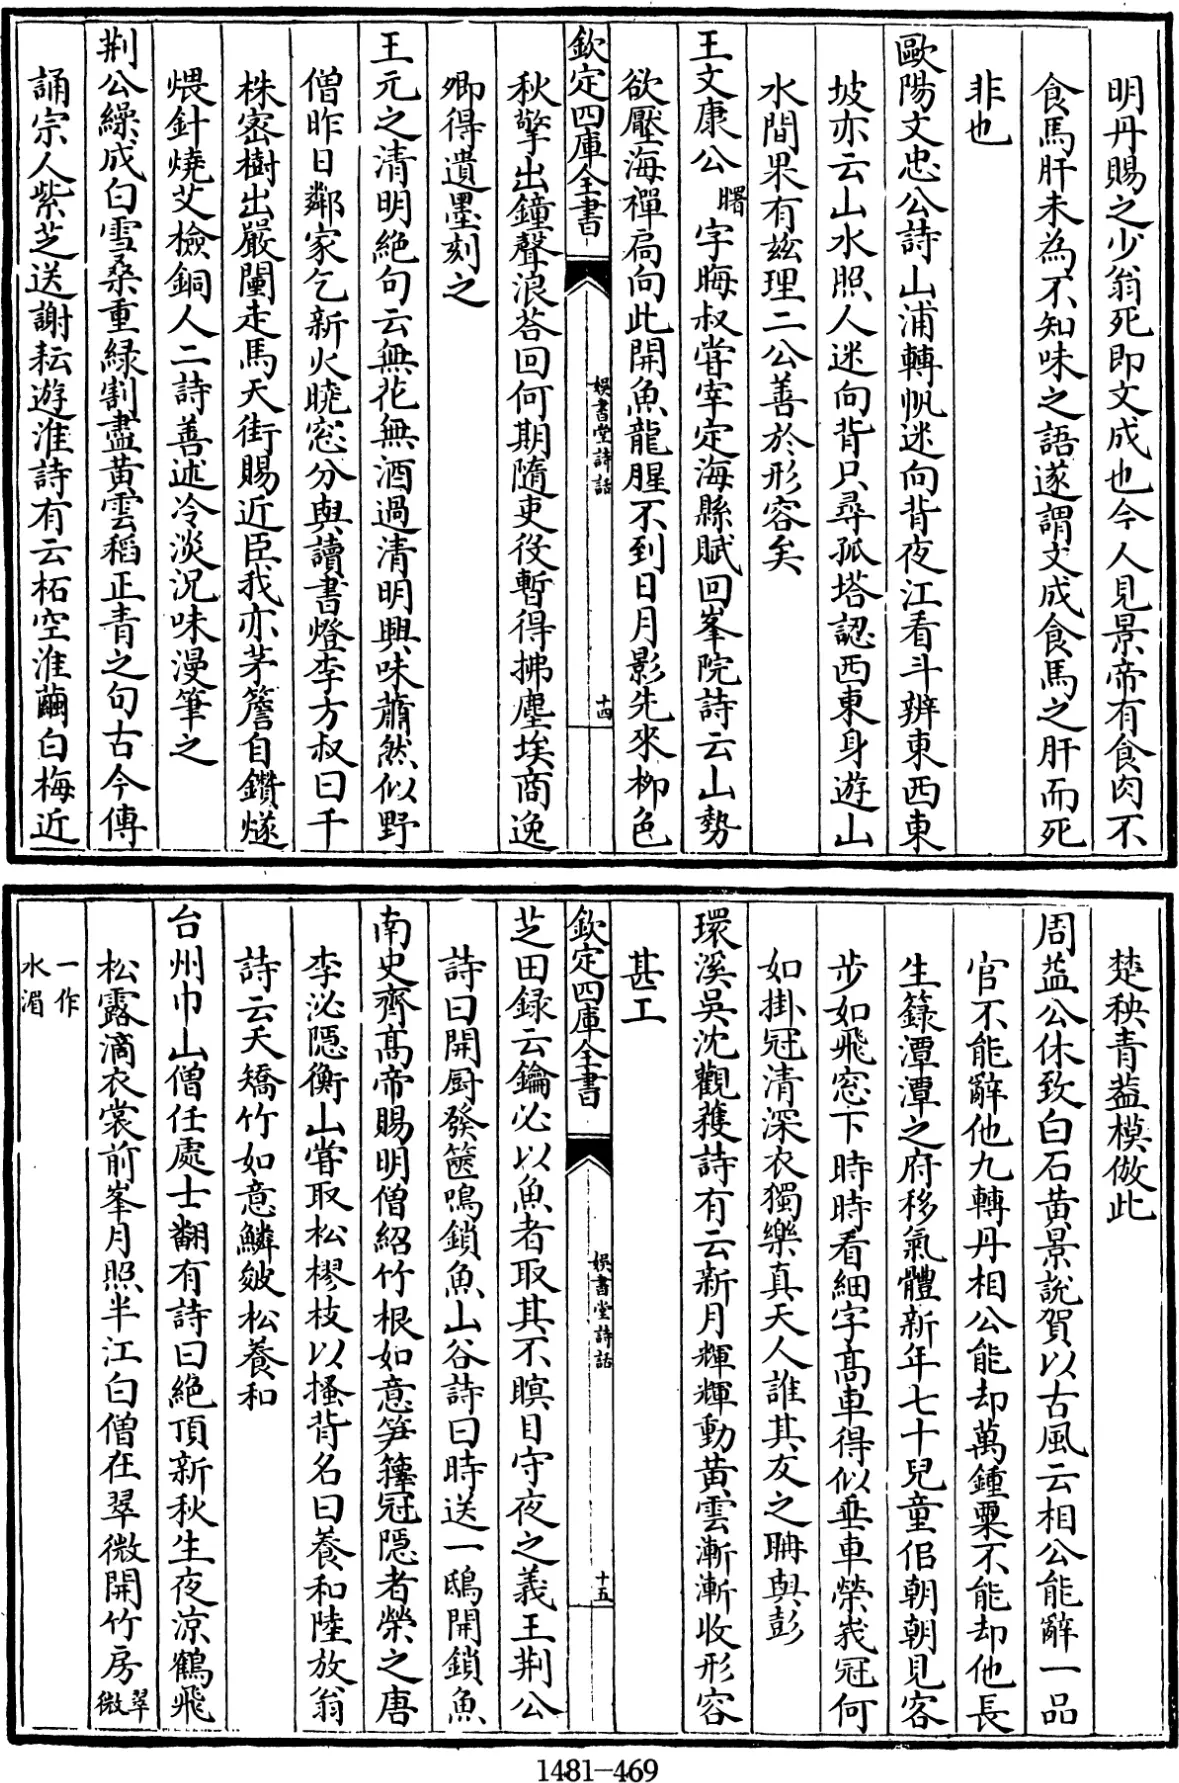 明丹賜之少翁死即文成也今人見景帝有食肉不
食馬肝未為不知味之語遂謂文成食馬之肝而死
非也
歐陽文忠公詩山浦轉帆迷向背夜江看斗辨東西東
坡亦云山水照人迷向背只尋孤塔認西東身遊山
水間果有兹理二公善於形容矣
王文康公曙字晦叔嘗宰定海縣賦回峯院詩云山勢
欲壓海禪扃向此開魚龍腥不到日月影先來柳色
欽定四庫全書
娛書堂詩話
十四
秋擎出鐘聲浪答回何期隨吏役暫得拂塵埃商逸
卿得遺墨刻之
王元之清明絶句云無花無酒過清明興味蕭然似野
僧昨日鄰家乞新火曉窓分與讀書燈李方叔曰千
株密樹出嚴闉走馬天街賜近臣我亦茅簷自鑽燧
煨針燒艾檢銅人二詩善述冷淡況味漫筆之
荆公繰成白雪桑重緑割盡黄雲稻正青之句古今傳
誦宗人紫芝送謝耘遊淮詩有云柘空淮繭白梅近
楚秧青葢模倣此
周益公休致白石黄景説賀以古風云相公能辭一品
官不能辭他九轉丹相公能却萬鍾粟不能却他長
生籙潭潭之府移氣體新年七十兒童佀朝朝見客
步如飛窓下時時看細字髙車得似垂車榮峩冠何
如掛冠清深衣獨樂真天人誰其友之聃與彭
環溪吳沈觀穫詩有云新月輝輝動黄雲漸漸收形容
甚工
欽定四庫全書
娛書堂詩話
十五
芝田録云鑰必以魚者取其不瞑目守夜之義王荆公
詩曰開厨發篋鳴鎖魚山谷詩曰時送一鴟開鎖魚
南史齊髙帝賜明僧紹竹根如意笋籜冠隱者榮之唐
李泌隠衡山嘗取松樛枝以搔背名曰養和陸放翁
詩云天矯竹如意鱗皴松養和
台州巾山僧任處士翻有詩曰絶頂新秋生夜涼鶴飛
松露滴衣裳前峯月照半江白僧在翠微開竹房翠微
一作水湄
1481-469